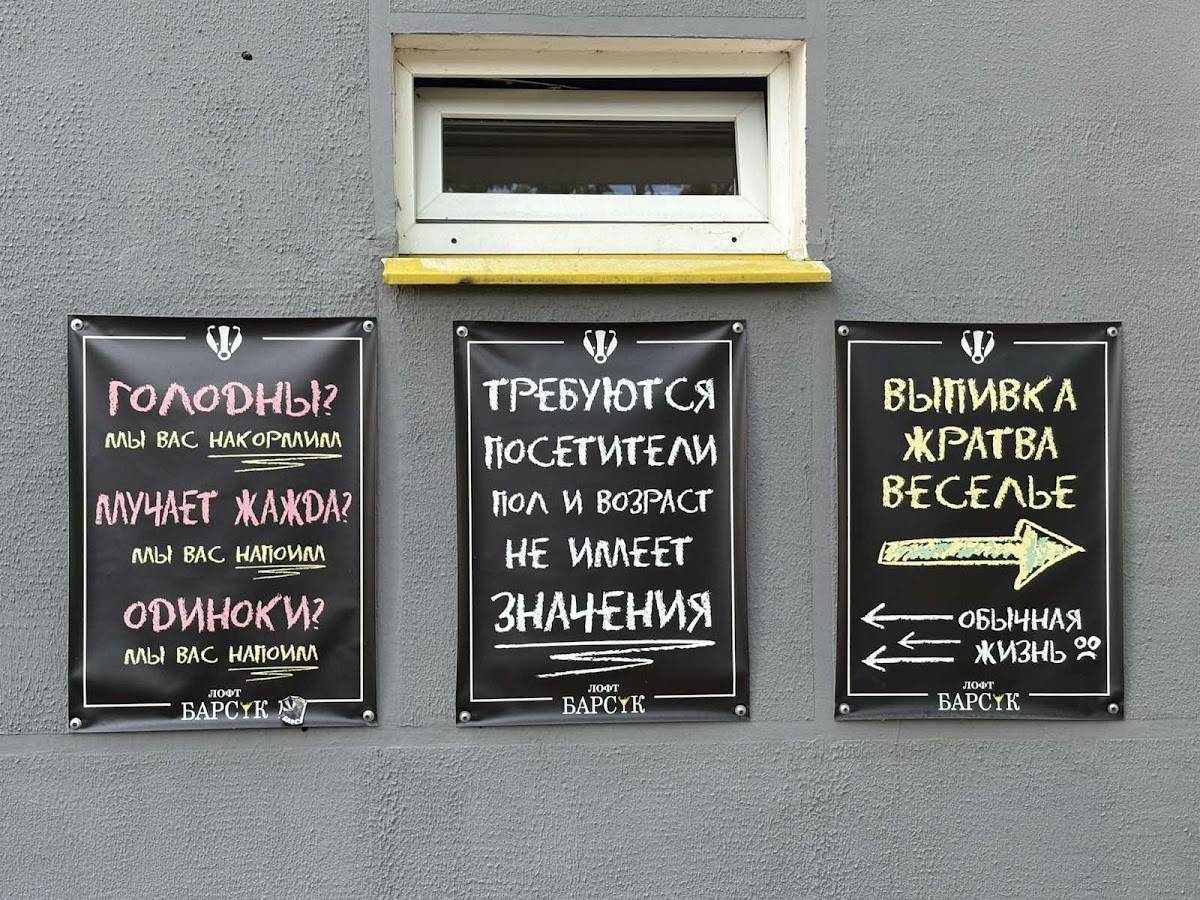 ГОЛОДНЫ?
МЫ ВАС НАКОРМИМ
МУЧАЕТ ЖАЖДА?
МЫ ВАС НАПОИМ
ОДИНОКИ?
МЫ ВАС НАПОИМ
ЛОФТ
БАРСУК
ТРЕБУЮТСЯ
ПОСЕТИТЕЛИ
ПОЛ И ВОЗРАСТ
НЕ ИМЕЕТ
ЗНАЧЕНИЯ
ЛОФТ
БАРСУК
ВЫПИВКА
ЖРАТВА
ВЕСЕЛЬЕ
ОБЫЧНАЯ
ЖИЗНЬ
ЛОФТ
БАРСУК